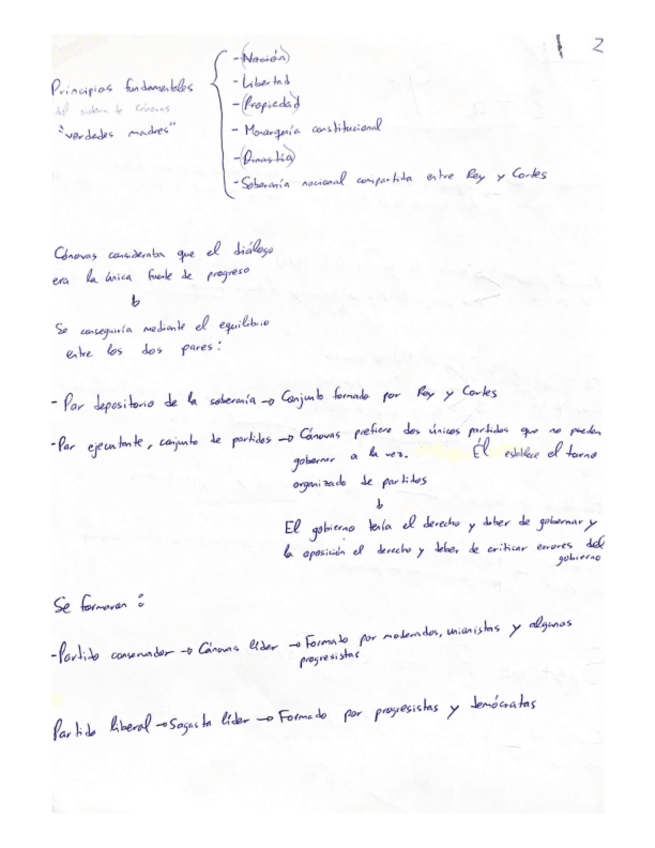 1 2
Principios fundamentales
del sistema de Cánovas
"verdades madres"
-(Nación)
-Libertad
-(Propiedad)
- Monarquía constitucional
-(Dinastía)
-Soberanía nacional compartida entre Rey y Cortes
Cánovas consideraba que el diálogo
era la única fuente de progreso
↓
Se conseguiría mediante el equilibrio
entre los dos pares:
- Par depositorio de la soberanía → Conjunto formado por Rey y Cortes
-Par ejecutante, conjunto de partidos → Cánovas prefiere dos únicos partidos que no puedan
gobernar a la vez. Él establece el turno
organizado de partidos
↓
El gobierno tenía el derecho y deber de gobernar y
la oposición el derecho y deber de criticar errores del
gobierno
Se formaron:
-Partido conservador → Cánovas líder → Formado por moderados, unionistas y algunos
progresistas
Partido liberal → Sagasta líder → Formado por progresistas y demócratas